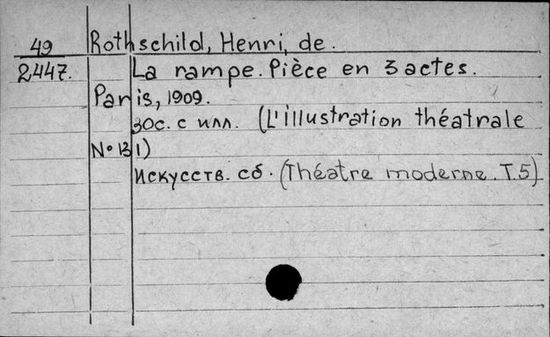 49 Rothschild, Henri, de.
2447. La rampe. Pièce en 3 actes.
Paris, 1909.
30с. с илл. (L'illustration théatrale
N° 131)
Искусств. сб. (Théatre moderne. T.5)